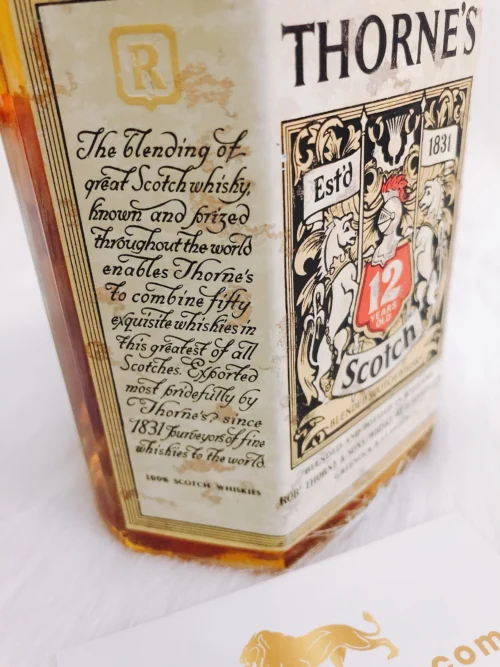 R
The blending of
great Scotch whisky,
known and prized
throughout the world
enables Thorne's
to combine fifty
exquisite whiskies in
this greatest of all
Scotches. Exported
most pridefully by
Thorne's, since
1831 purveyors of fine
whiskies to the world.
100% SCOTCH WHISKIES
THORNE'S
Est'd 1831
12
YEARS
OLD
Scotch
BLENDED
BLENDED AND BOTTLED
ROBT THORNE & SONS
.com